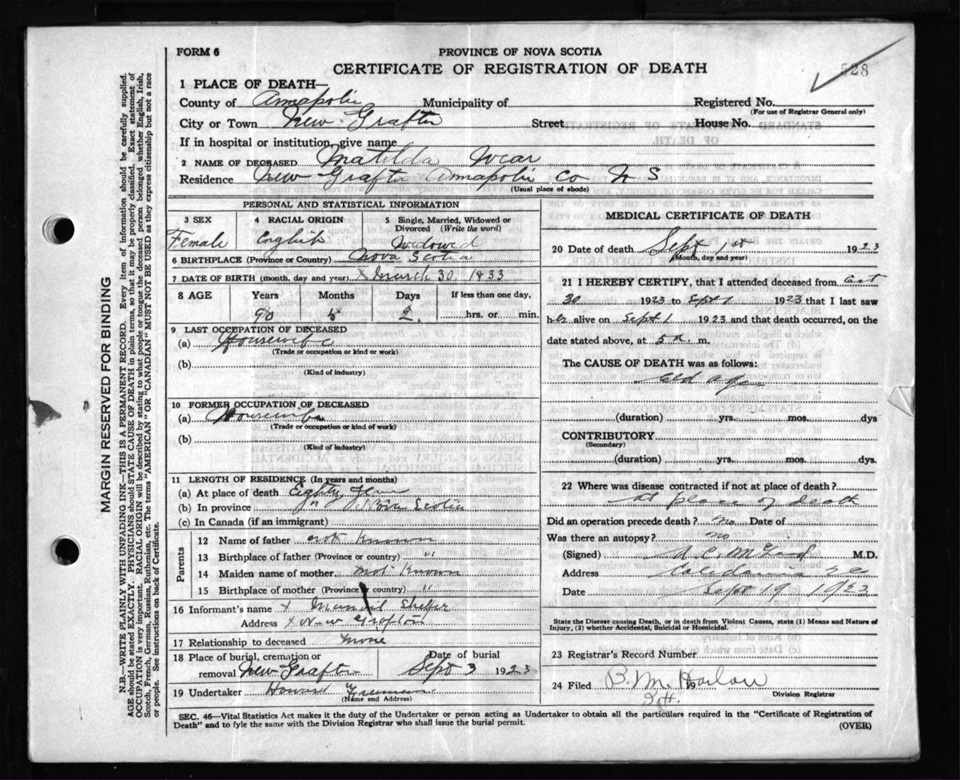 FORM 6
PROVINCE OF NOVA SCOTIA
CERTIFICATE OF REGISTRATION OF DEATH
528
1 PLACE OF DEATH—
County of Annapolis Municipality of Registered No.
(For use of Registrar General only)
City or Town New Grafton Street House No.
If in hospital or institution, give name
2 NAME OF DECEASED Matilda Wear
Residence New Grafton Annapolis Co N S
(Usual place of abode)
PERSONAL AND STATISTICAL INFORMATION
3 SEX 4 RACIAL ORIGIN 5 Single, Married, Widowed or Divorced (Write the word)
Female English Widowed
6 BIRTHPLACE (Province or Country) Nova Scotia
7 DATE OF BIRTH (month, day and year) X March 30 1833
8 AGE Years Months Days If less than one day,
90 5 2 hrs. or min.
9 LAST OCCUPATION OF DECEASED
(a) Housewife
(Trade or occupation or kind or work)
(b)
(Kind of industry)
10 FORMER OCCUPATION OF DECEASED
(a) Housewife
(Trade or occupation or kind of work)
(b)
(Kind of industry)
11 LENGTH OF RESIDENCE (In years and months)
(a) At place of death Eighty
(b) In province Nova Scotia
(c) In Canada (if an immigrant)
Parents
12 Name of father not Known
13 Birthplace of father (Province or country) "
14 Maiden name of mother not Known
15 Birthplace of mother (Province or country) "
16 Informant's name X
Address X New Grafton
17 Relationship to deceased None
18 Place of burial, cremation or removal New Grafton Date of burial Sept 3 1923
19 Undertaker Howard Freeman
(Name and Address)
MEDICAL CERTIFICATE OF DEATH
20 Date of death Sept 1st 1923
(Month, day and year)
21 I HEREBY CERTIFY, that I attended deceased from Oct
30 1923 to Sept 1 1923 that I last saw
her alive on Sept. 1 1923 and that death occurred, on the
date stated above, at 5 a m.
The CAUSE OF DEATH was as follows:
old age
(duration) yrs. mos. dys
CONTRIBUTORY
(Secondary)
(duration) yrs. mos. dys.
22 Where was disease contracted if not at place of death?
At place of death
Did an operation precede death? no Date of
Was there an autopsy? no
(Signed) M.D.
Address Caledonia
Date Sept 19 1923
State the Disease causing Death, or in death from Violent Causes, state (1) Means and Nature of
Injury, (2) whether Accidental, Suicidal or Homicidal.
23 Registrar's Record Number
24 Filed B. M. Harlow 19
Division Registrar
SEC. 46—Vital Statistics Act makes it the duty of the Undertaker or person acting as Undertaker to obtain all the particulars required in the "Certificate of Registration of
Death" and to fyle the same with the Division Registrar who shall issue the burial permit.
(OVER)
MARGIN RESERVED FOR BINDING
N.B.—WRITE PLAINLY WITH UNFADING INK—THIS IS A PERMANENT RECORD. Every item of information should be carefully supplied.
AGE should be stated EXACTLY. PHYSICIANS should STATE CAUSE OF DEATH in plain terms, so that it may be properly classified. Exact statement of
OCCUPATION is very important. RACIAL ORIGIN will be described by stating to what people or tongue the deceased person belonged, whether English, Irish,
Scotch, French, German, Russian, Ruthenian, etc. The terms "AMERICAN" OR "CANADIAN" MUST NOT BE USED as they express citizenship but not a race
or people. See instructions on back of Certificate.